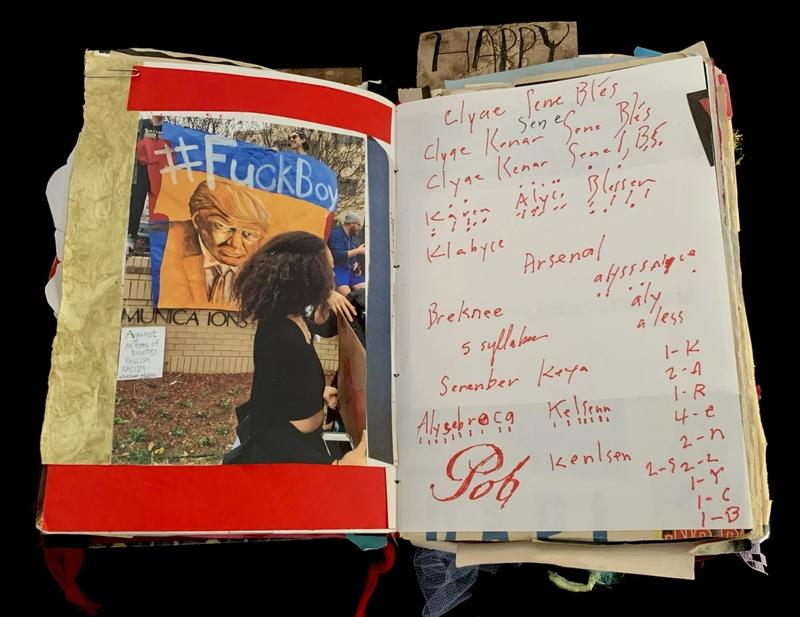 HAPPY
#FuckBoy
MUNICA IONS
Against
All forms of
BIGOTRY
FASCISM
RACISM
Clyae Sene Blés
Sene
Clyae Kenar Sene Blés
Clyae Kenar Senel, B.S.
Karen Alyce Blessen
Klabyce
Arsenal
alysssalyce
aly
aless
Breknee
5 syllables
Serenber Keya
1-K
2-A
1-R
4-e
2-n
2-S 2-L
1-Y
1-C
1-B
Alysebreca Kelsenn
Kenlsen
Pob